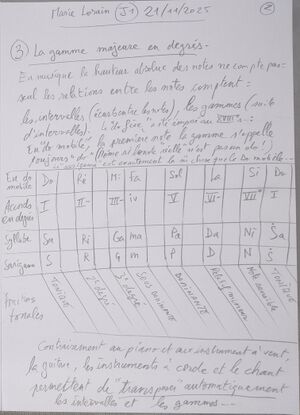 Marie Lorain J1 21/11/2025 2
3 La gamme majeure en degrés.
En musique la hauteur absolue des notes ne compte pas
seul les relations entre les notes comptent:
les intervalles (écarts entre les notes), les gammes (suite
d'intervalles). "été imposé au XVIIIe s.:
En "do mobile", la première note de la gamme s'appelle
toujours "do" (Même si la note "réelle" n'est pas un do!)
est exactement la même chose que le Do mobile...
En do mobile Do Ré Mi Fa Sol La Si Do
Accords en degrés I II- III- iv V VI- VII° I
Syllabe Sa Ri Ga ma Pa Da Ni Ŝa
Sarigam S R G m P D N Ŝ
fonctions tonales TONIQUE 2e degré 3e degré Sous dominante DOMINANTE Relatif mineur Note sensible TONIQUE
Contrairement au piano et aux instruments à vent,
la guitare, les instruments à corde et le chant
permettent de "transposer" automatiquement
les intervalles et les gammes...